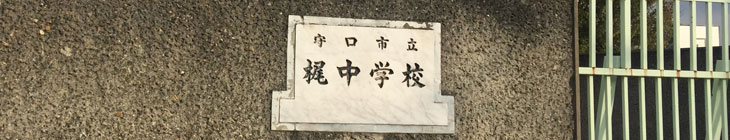 守口市立
梶中学校